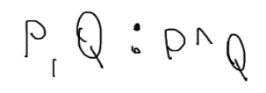 P, Q : P ^ Q